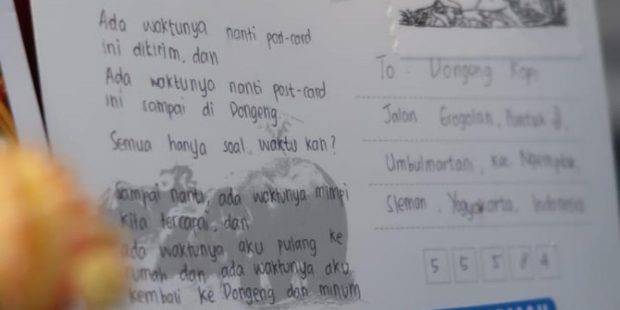 Ada waktunya nanti post-card
ini dikirim, dan
Ada waktunya nanti post-card
ini sampai di Dongeng.
Semua hanya soal waktu kan?
Sampai nanti, ada waktunya mimpi
kita tercapai, dan
ada waktunya aku pulang ke
rumah dan ada waktunya aku
kembali ke Dongeng dan minum
To : Dongeng Kopi
Jalan Grogolan,
Umbulmartani, Kec Ngemplak,
Sleman, Yogyakarta, Indonesia
5 5 5 8 4